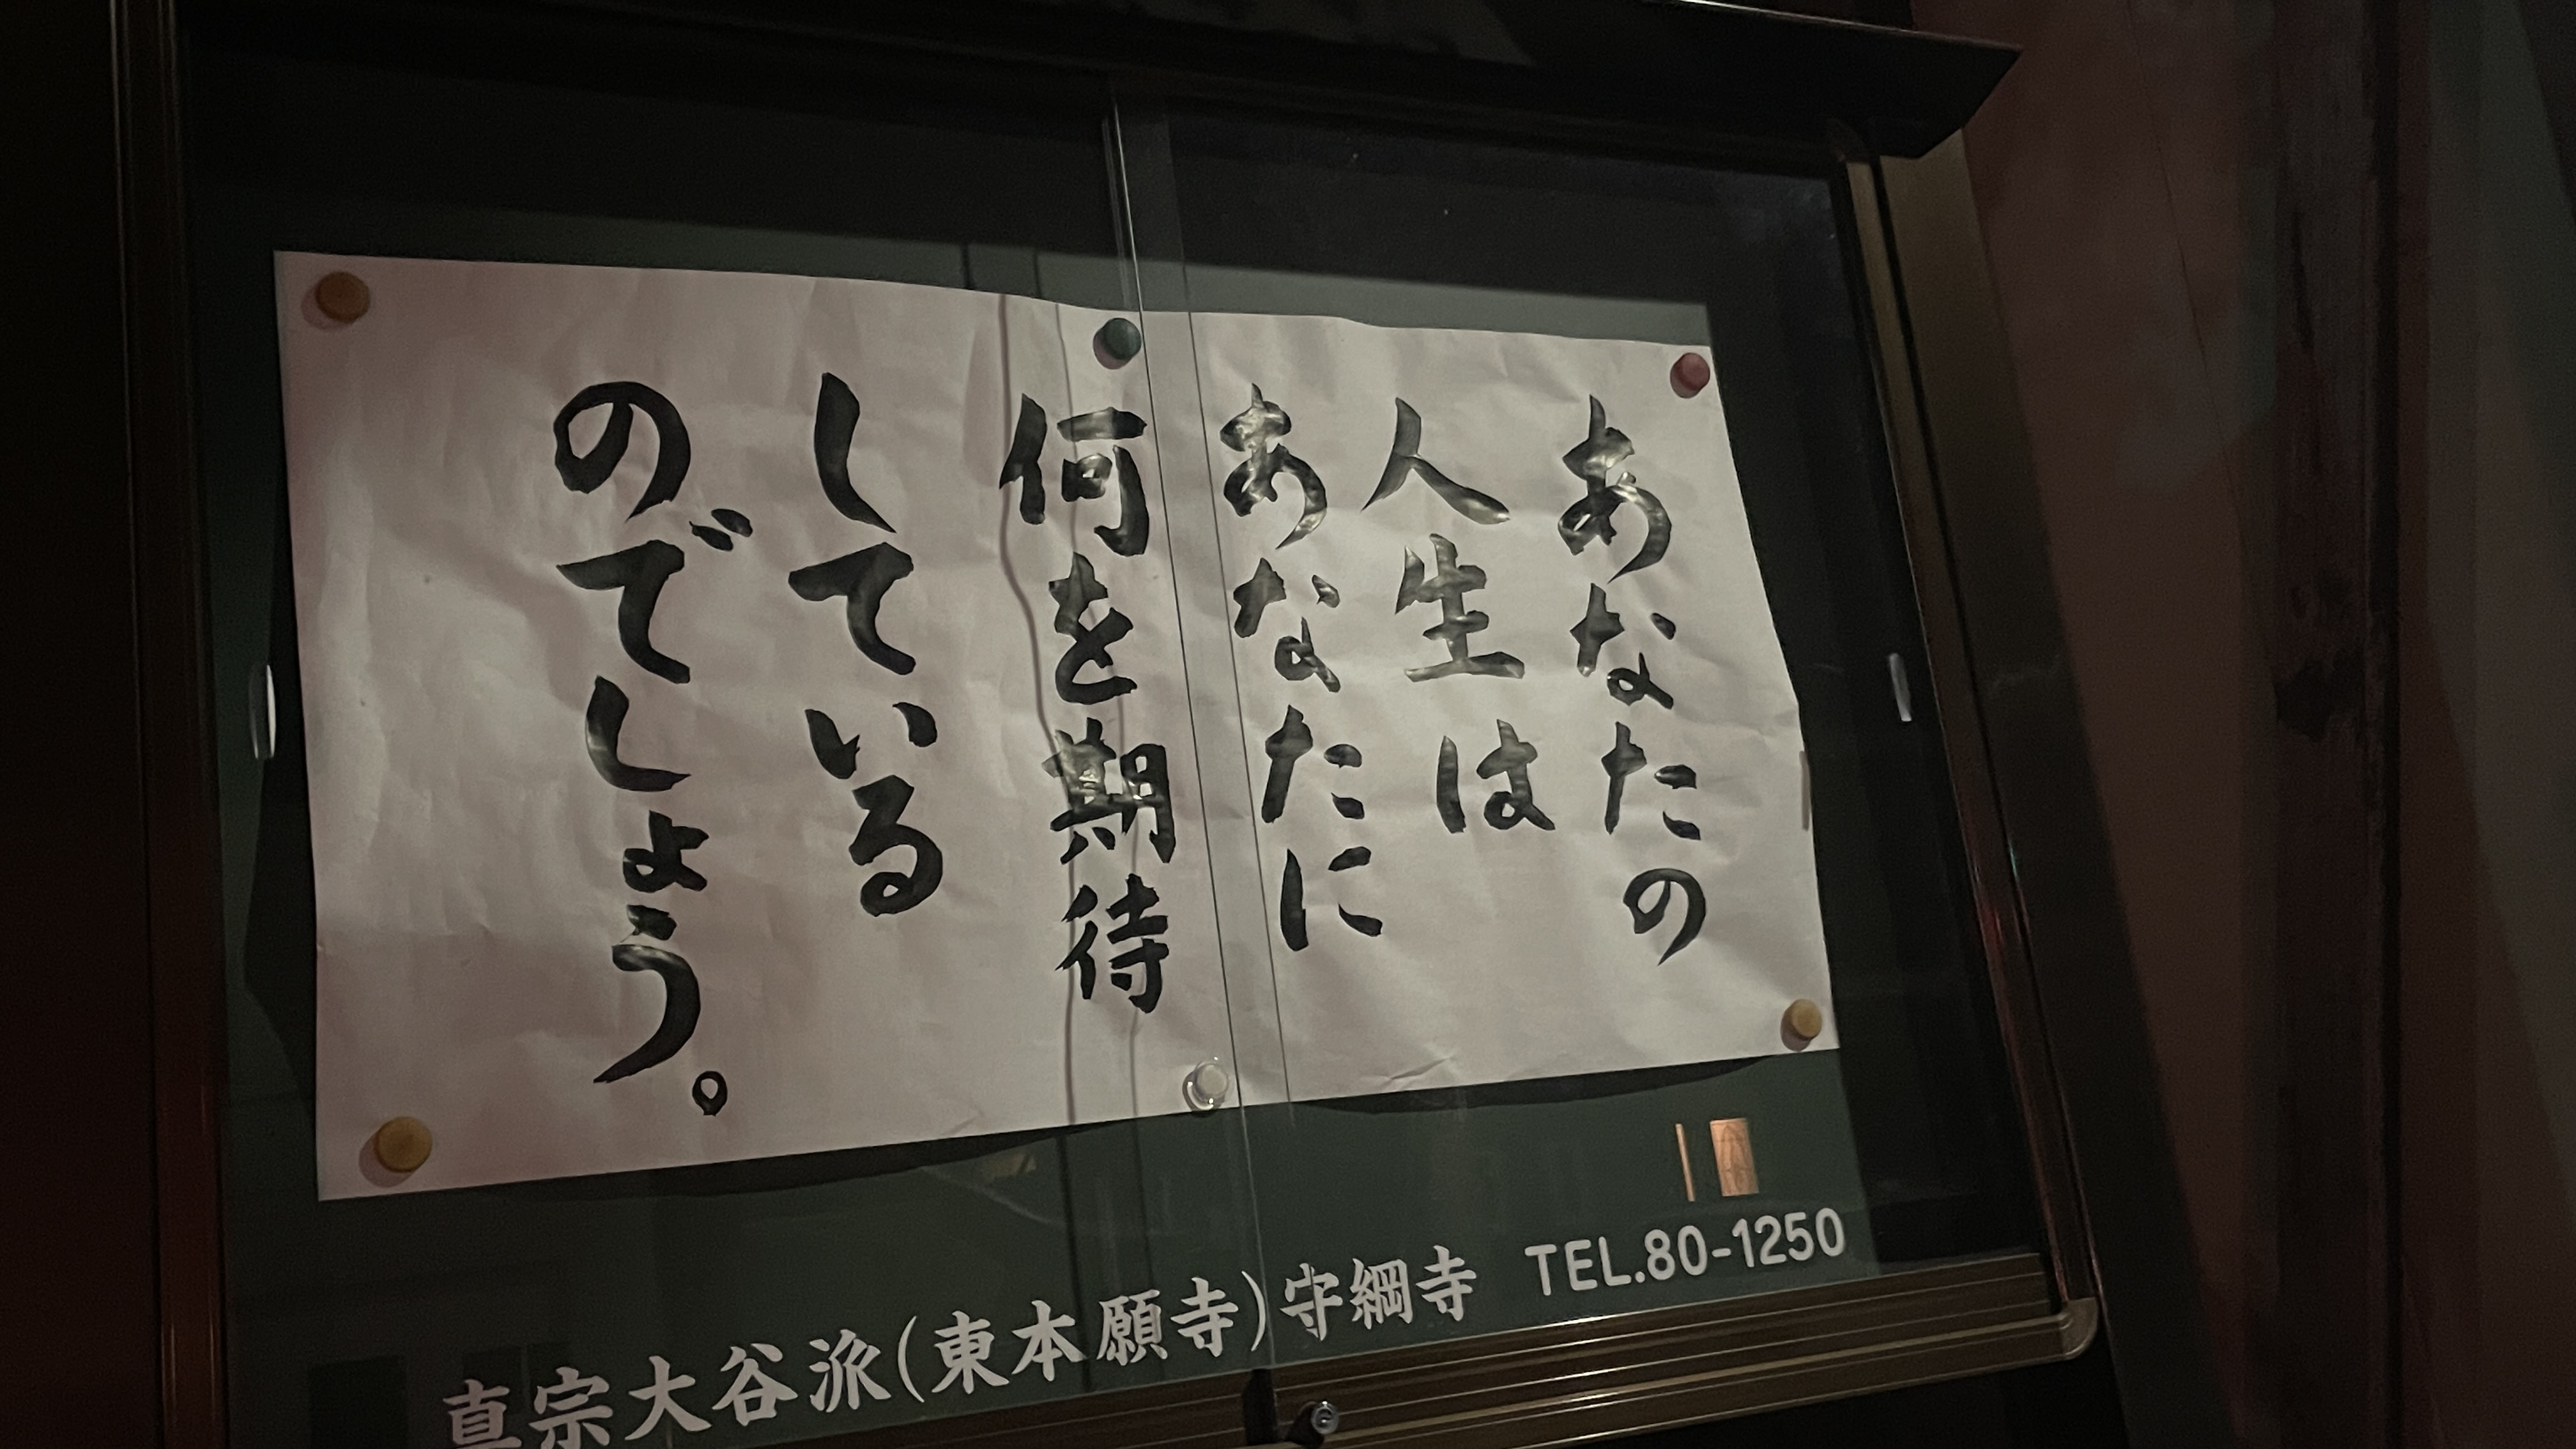 あなたの
人生は
あなたに
何を期待
している
のでしょう。
真宗大谷派(東本願寺)守綱寺 TEL.80-1250